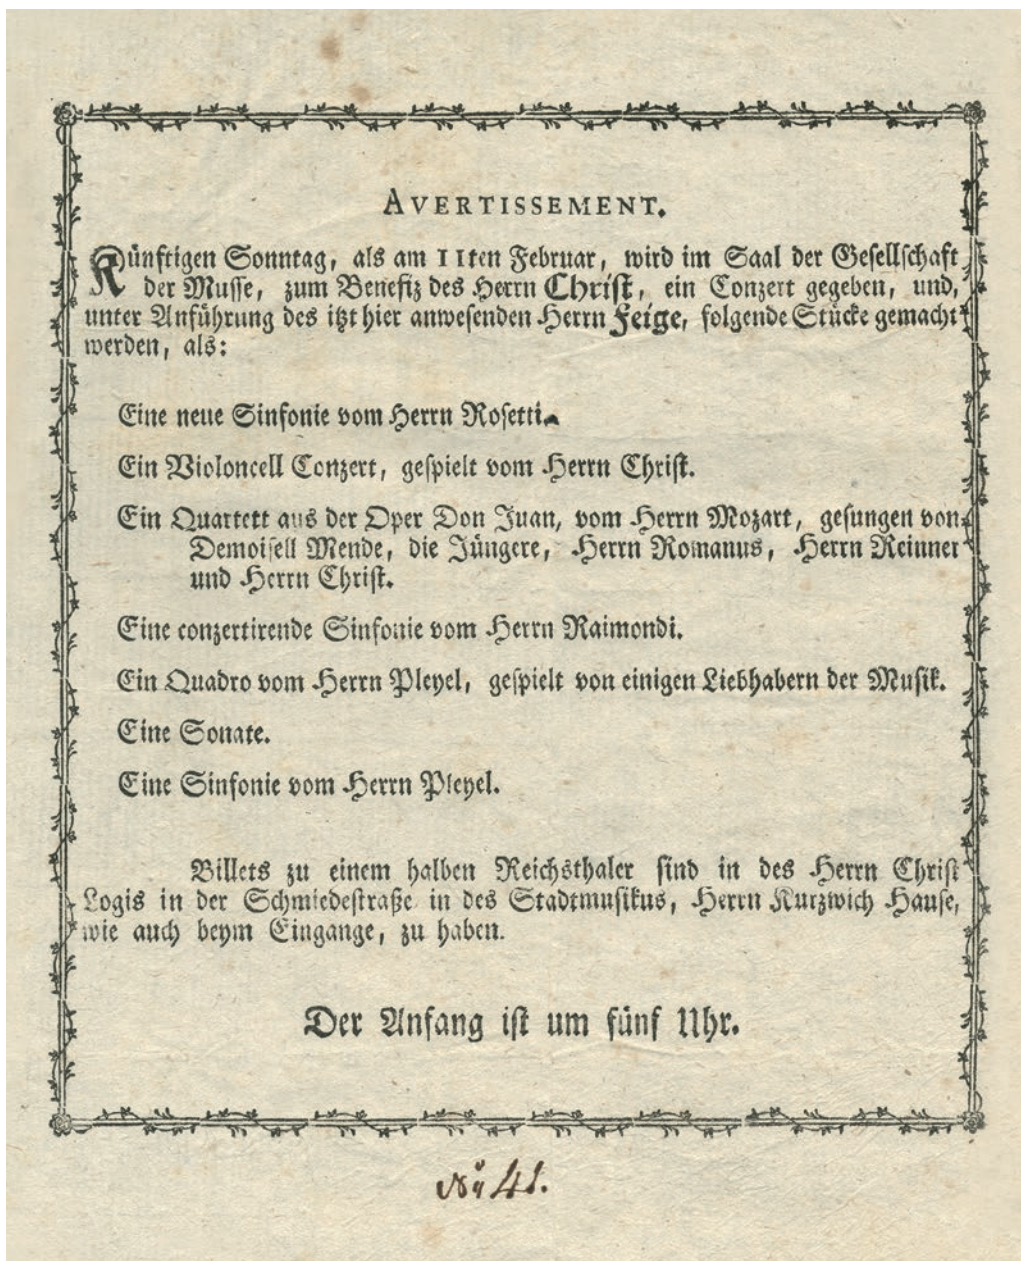 AVERTISSEMENT.
Künftigen Sonntag, als am 11ten Februar, wird im Saal der Gesellschaft
der Musse, zum Benefiz des Herrn Christ, ein Conzert gegeben, und,
unter Anführung des itzt hier anwesenden Herrn Feige, folgende Stücke gemacht
werden, als:
Eine neue Sinfonie vom Herrn Rosetti.
Ein Violoncell Conzert, gespielt vom Herrn Christ.
Ein Quartett aus der Oper Don Juan, vom Herrn Mozart, gesungen von
Demoisell Mende, die Jüngere, Herrn Romanus, Herrn Reinner
und Herrn Christ.
Eine conzertirende Sinfonie vom Herrn Raimondi.
Ein Quadro vom Herrn Pleyel, gespielt von einigen Liebhabern der Musik.
Eine Sonate.
Eine Sinfonie vom Herrn Pleyel.
Billets zu einem halben Reichsthaler sind in des Herrn Christ
Logis in der Schmiedestraße in des Stadtmusikus, Herrn Kurzwich Hause,
wie auch beym Eingange, zu haben.
Der Anfang ist um fünf Uhr.
41.